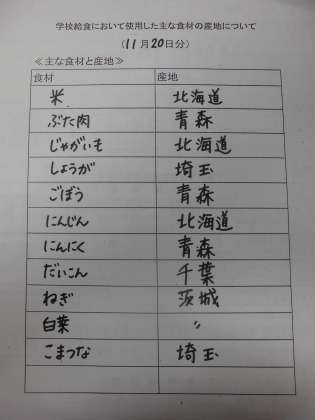 学校給食において使用した主な食材の産地について
(11月20日分)
≪主な食材と産地≫
食材 産地
米 北海道
ぶた肉 青森
じゃがいも 北海道
しょうが 埼玉
ごぼう 青森
にんじん 北海道
にんにく 青森
だいこん 千葉
ねぎ 茨城
白菜 〃
こまつな 埼玉